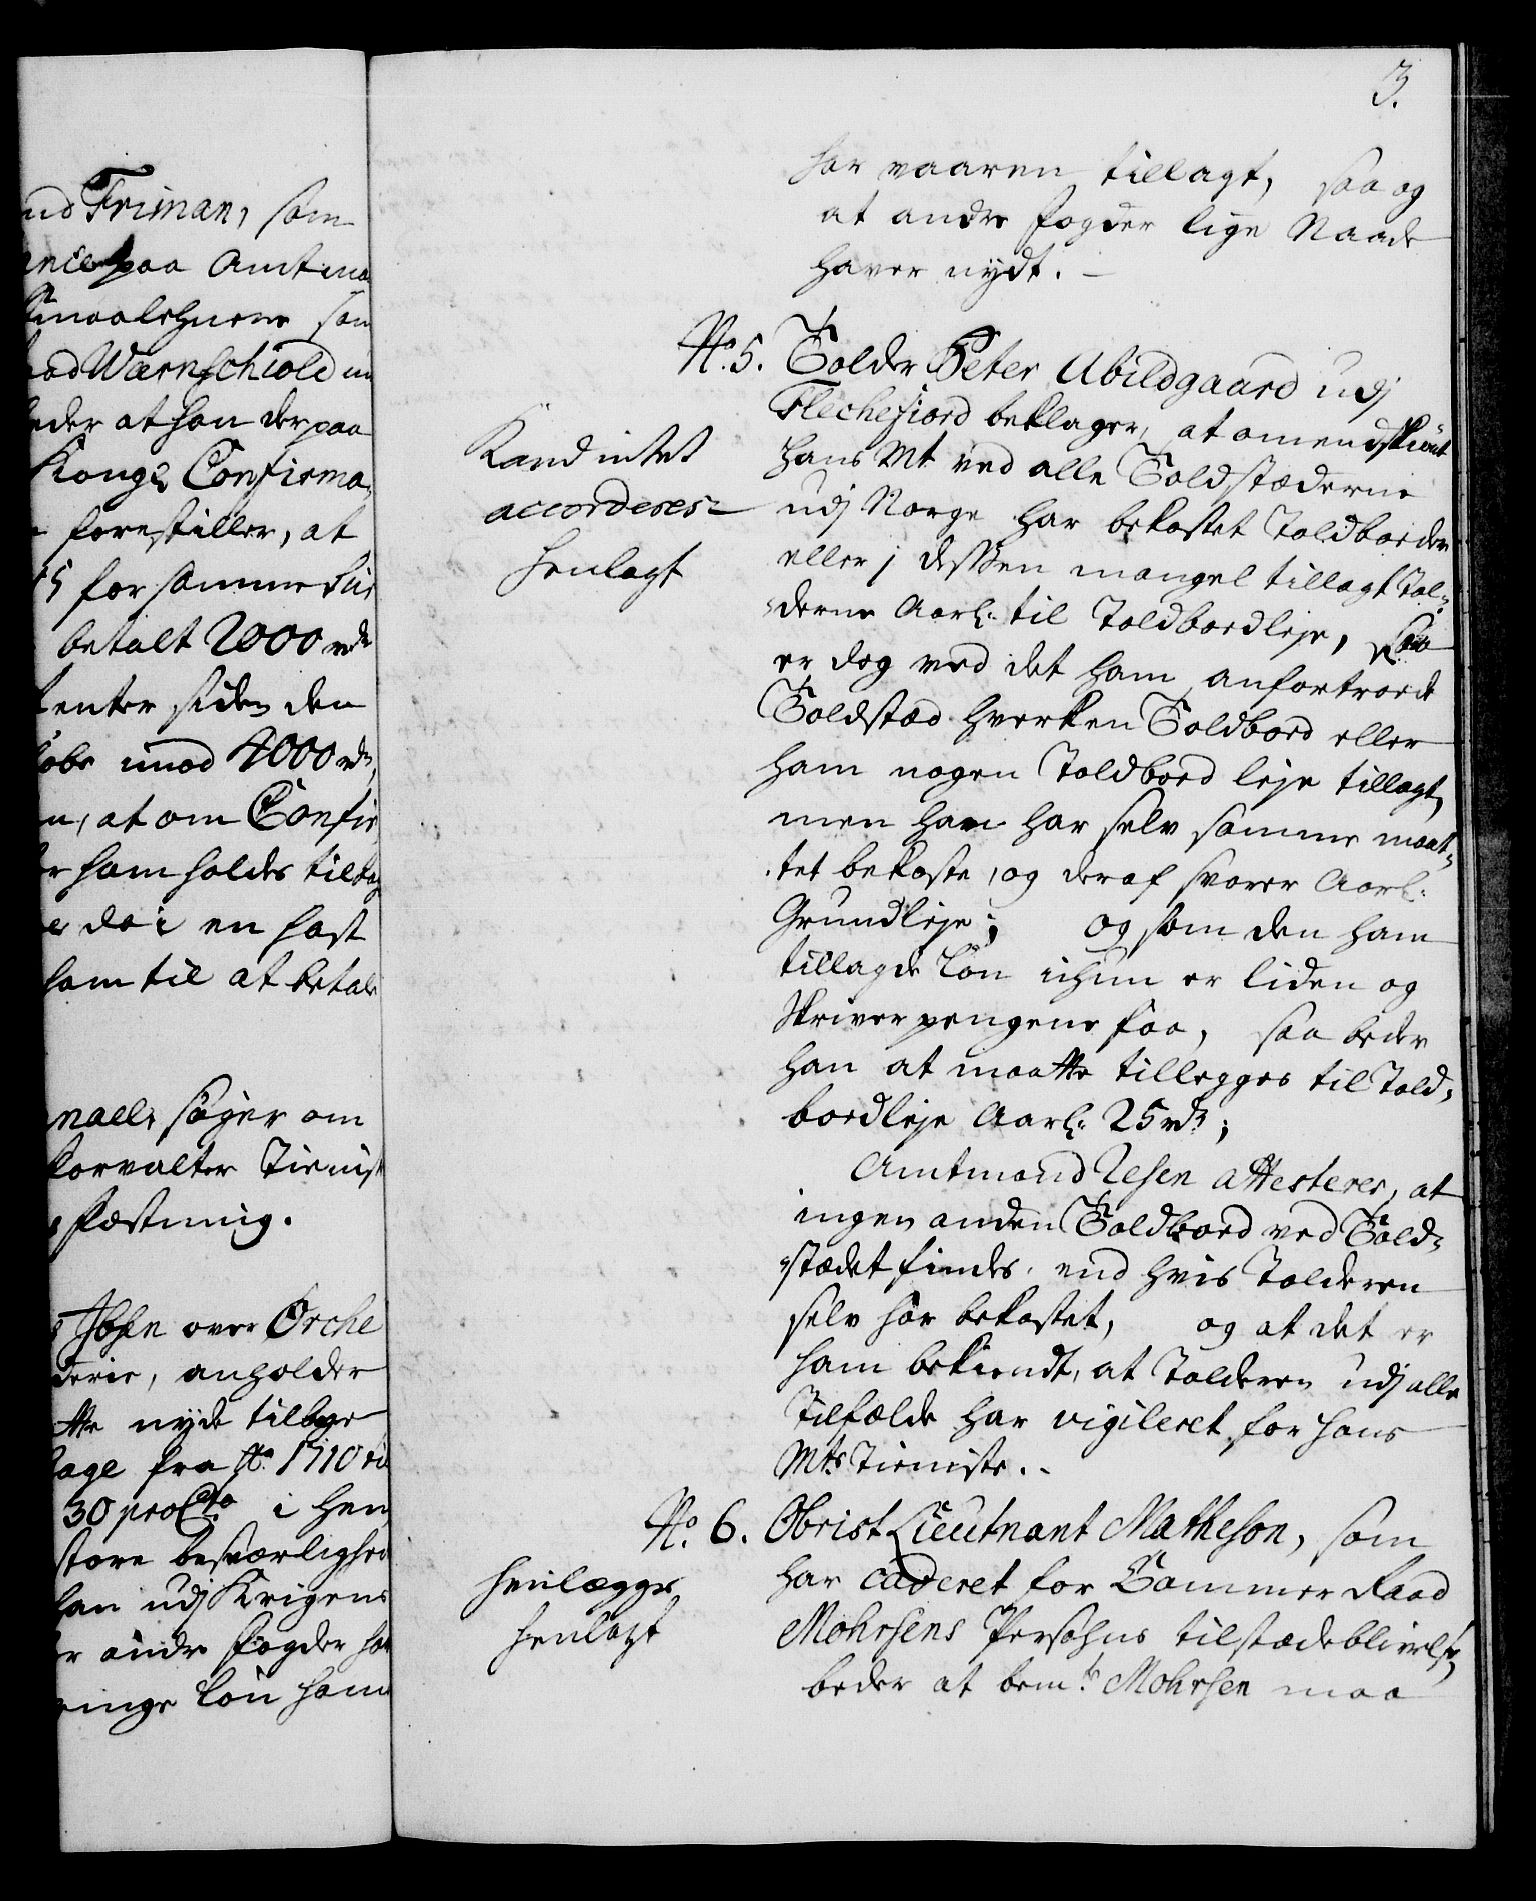 nd Friman, som
paa Amtma
som
Wærnschiold
eder at han derpaa
Kongl. Confirma,
forestiller, at
for samme
betalt 2000 rdr
siden den
imod 4000 rdr,
n, at om Confir
ham holdes tilbag
en hast
ham til at betale
søger om
forvalter Tienist
Fæstning.
over Orche
derie, anholder
nyde tilbage
fra Ao. 1710 til
30 proCto i hen
store besværlighed
han udj Krigens
andre fogder har
ringe løn ham
3.
har vaaren tillagt, saa og
at andre fogder lige Naade
haver nydt. —
No. 5. Tolder Peter Abildgaard udj
Flechefiord beklager, at omendskiønt
Kand intet
Hans Mt ved alle Toldstæderne
accorderes
udj Norge har bekostet Toldboeder
eller j dessen mangel tillagt Tol-
henlagt
derne Aarl: til Toldbordleje, saa
er dog ved det ham anfortroede
Toldstæd hverken Toldbord eller
ham nogen Toldbord leje tillagt,
men han har selv samme maat-
tet bekoste, og deraf svarer Aarl:
Grundleje; og som den ham
tillagde løn ichun er liden og
Skriver pengene faa, saa beder
han at maatte tillegges til Told-
bordleje Aarl: 25 rdr;
Amtmand Resen attesterer, at
ingen anden Toldbord ved Told-
stædet findes, end hvis Tolderen
selv har bekostet, og at det er
ham bekiendt, at Tolderen udj alle
Tilfælde har vigileret for Hans
Mts Tieniste. -
No. 6. Obrist Lieutnant Matheson, som
henlægges
har caderet for Cammer Raad
henlagt
Mohrsens Persohns tilstædeblivelse,
beder at bemte Mohrsen maa